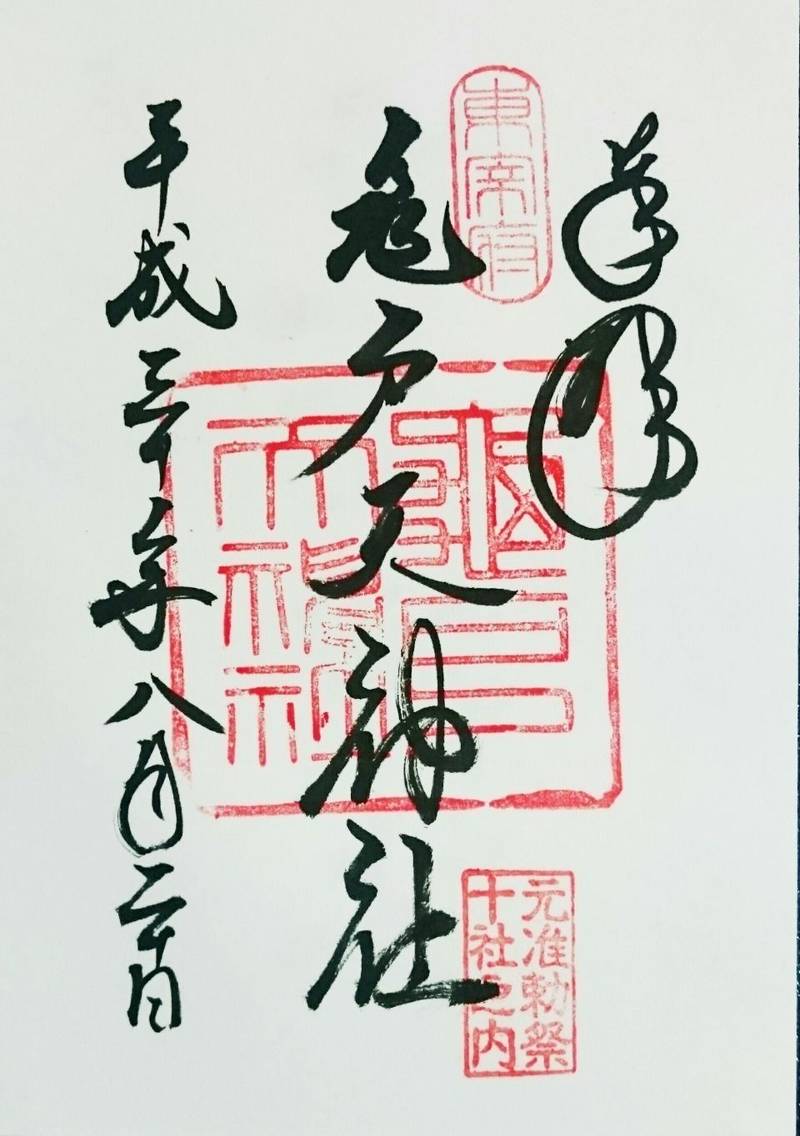 奉拝
東宰府
亀戸天神社
龜戸
天神社
元准勅祭
十社之内
平成三十年八月二十日